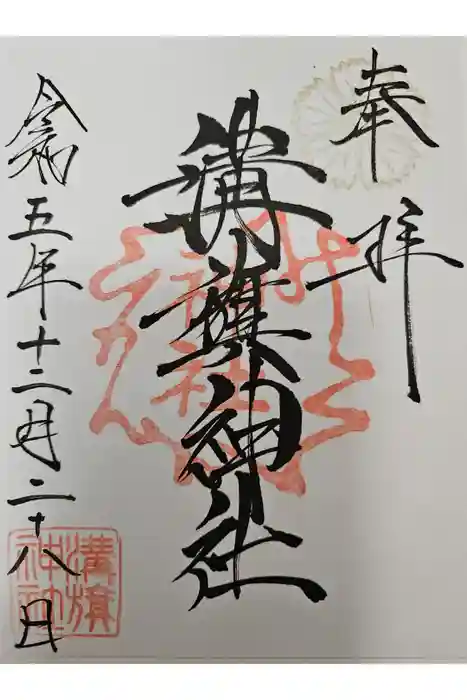 奉拝
溝旗神社
令和五年十二月二十八日
溝旗
神社